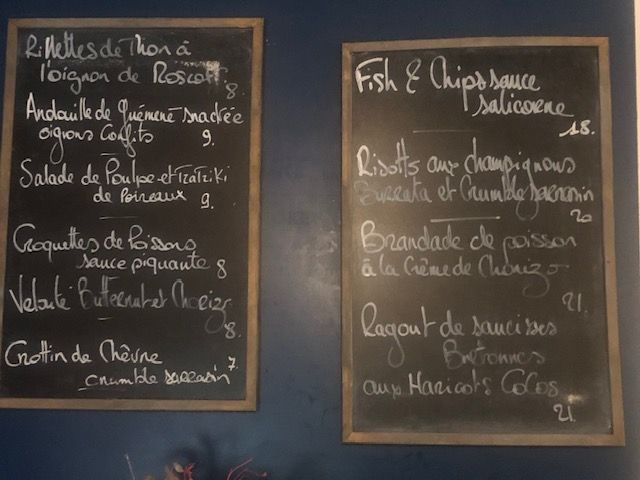 Rillettes de Thon à
l'oignon de Roscoff
8.
Andouille de Guémené snackée
oignons Confits 9.
Salade de Poulpe et Tzatziki
de Poireaux 9.
Croquettes de Poissons
sauce piquante 8
Velouté Butternut et Chorizo
8.
Crottin de Chèvre 7.
crumble sarrasin
Fish & Chips sauce
salicorne
18.
Risotto aux champignons
Burrata et Crumble sarrasin
20
Brandade de poisson
à la Crème de Chorizo
21.
Ragout de saucisses
Bretonnes
aux Haricots Cocos
21.